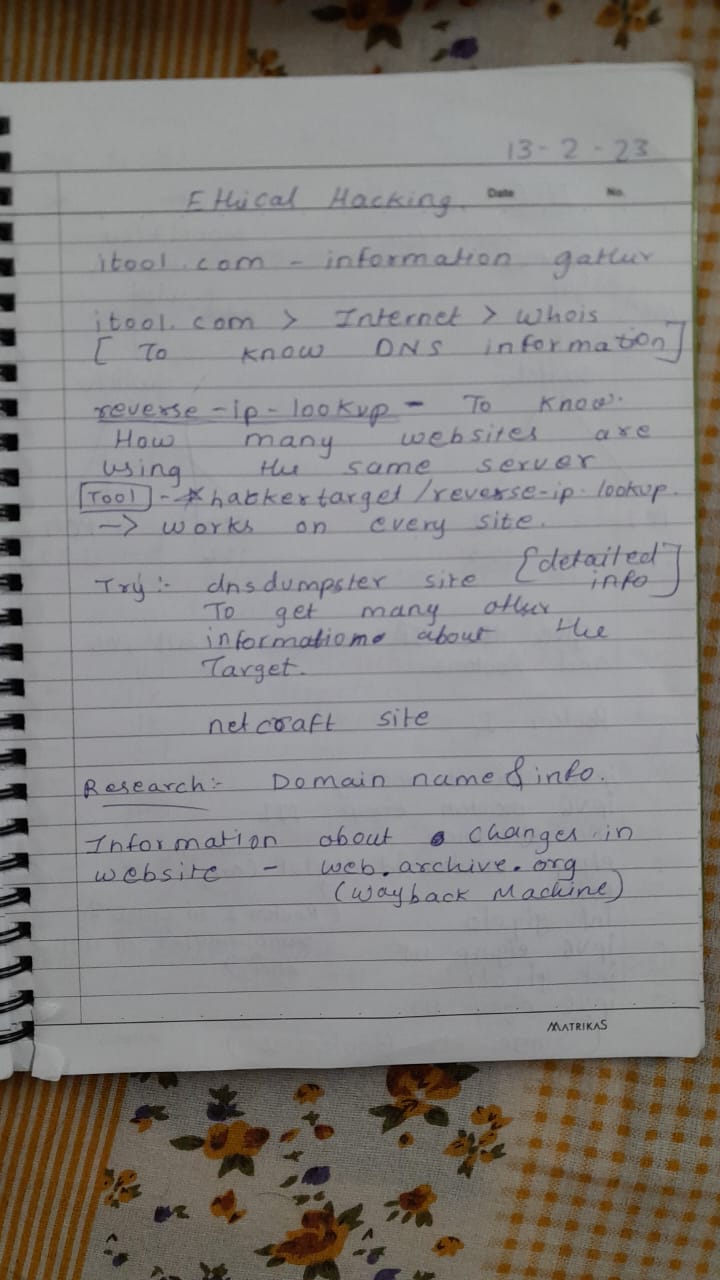 13-2-23
Ethical Hacking. Date No.
itool.com - information gather
itool.com > Internet > Whois
[ To know DNS information]
reverse-ip-lookup - To know.
How many websites are
using the same server
Tool - * hackertarget/reverse-ip-lookup.
-> works on every site.
Try :- dnsdumpster site [detailed info]
To get many other
informations about the
Target.
netcraft site
Research:- Domain name & info.
Information about changes in
website - web.archive.org
(Wayback Machine)
MATRIKAS